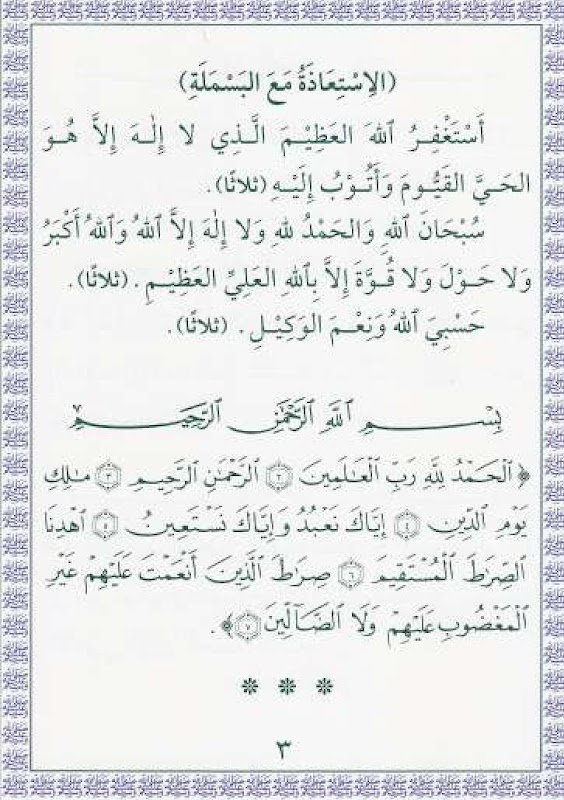 (الاِسْتِعَاذَةُ مَعَ البَسْمَلَةِ)
أَسْتَغْفِرُ اللهَ العَظِيْمَ الَّذِي لا إِلٰهَ إِلاَّ هُوَ
الحَيَّ القَيُّومَ وَأَتُوْبُ إِلَيْهِ (ثلاثًا).
سُبْحَانَ اللهِ وَالحَمْدُ للهِ وَلا إِلٰهَ إِلاَّ اللهُ وَاللهُ أَكْبَرُ
وَلا حَوْلَ وَلا قُوَّةَ إِلاَّ بِاللهِ العَلِيِّ العَظِيْمِ. (ثلاثًا).
حَسْبِيَ اللهُ وَنِعْمَ الوَكِيْلِ. (ثلاثًا).
بِسْمِ ٱللَّهِ ٱلرَّحْمَٰنِ ٱلرَّحِيمِ
﴿ٱلْحَمْدُ لِلَّهِ رَبِّ ٱلْعَالَمِينَ ۝٢ ٱلرَّحْمَٰنِ ٱلرَّحِيمِ ۝٣ مَٰلِكِ
يَوْمِ ٱلدِّينِ ۝٤ إِيَّاكَ نَعْبُدُ وَإِيَّاكَ نَسْتَعِينُ ۝٥ ٱهْدِنَا
ٱلصِّرَٰطَ ٱلْمُسْتَقِيمَ ۝٦ صِرَٰطَ ٱلَّذِينَ أَنْعَمْتَ عَلَيْهِمْ غَيْرِ
ٱلْمَغْضُوبِ عَلَيْهِمْ وَلَا ٱلضَّآلِّينَ ۝٧﴾.
٣